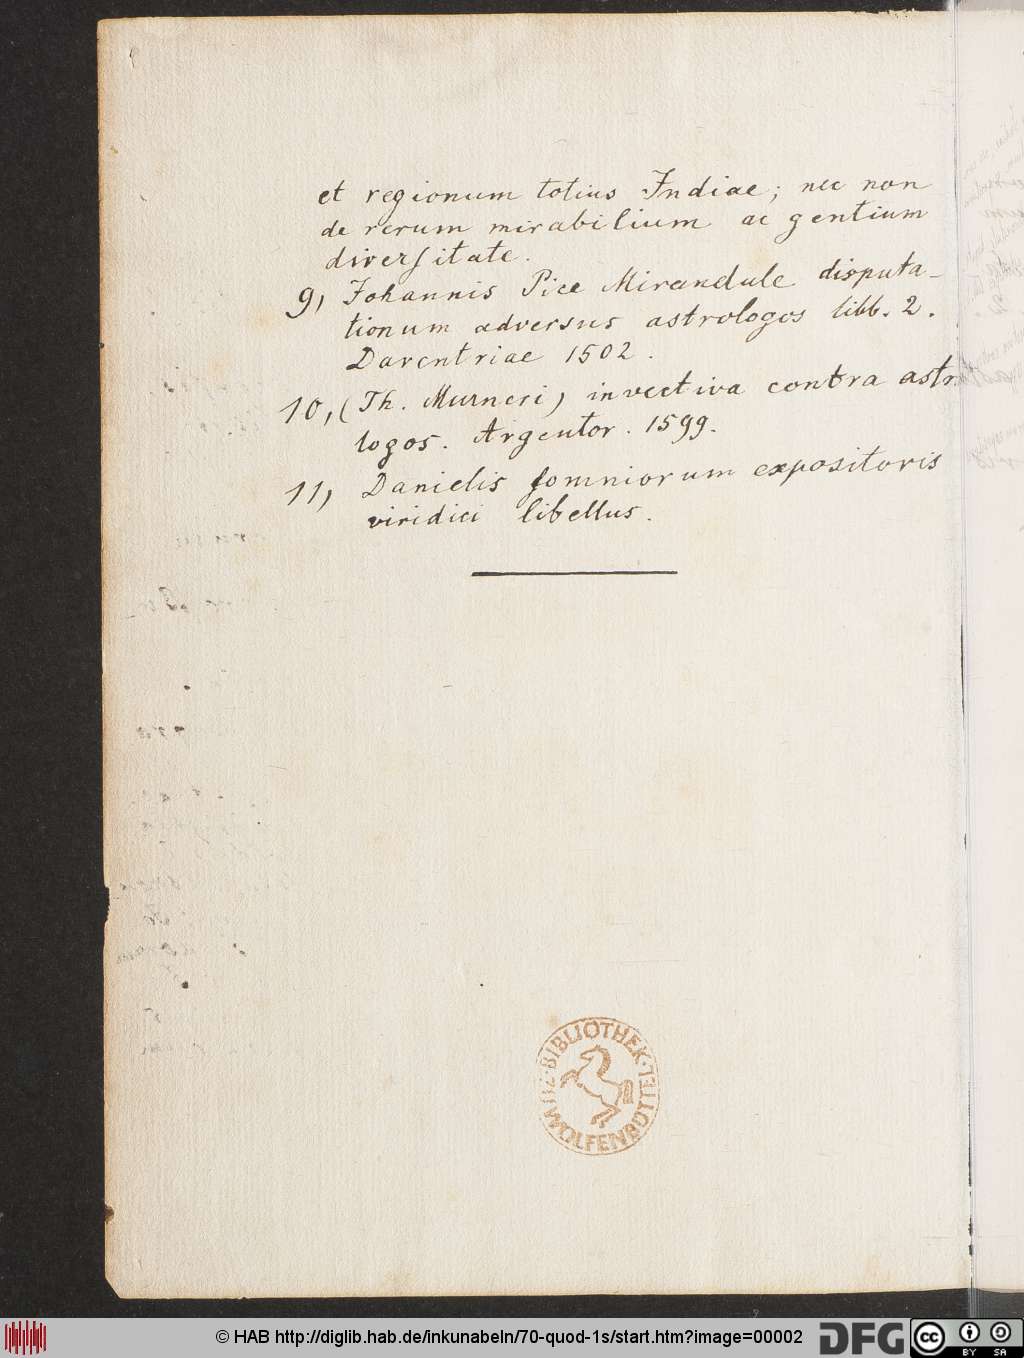 et regionum totius Indiae; nec non
de rerum mirabilium ac gentium
diversitate.
9, Johannis Pice Mirandule disputa-
tionum adversus astrologos libb. 2.
Daventriae 1502.
10, (Th. Murneri) invectiva contra astr
logos. Argentor. 1599.
11, Danielis somniorum expositoris
viridici libellus.
BIBLIOTHEK
ZU WOLFENBÜTTEL
© HAB http://diglib.hab.de/inkunabeln/70-quod-1s/start.htm?image=00002
DFG
cc
BY SA